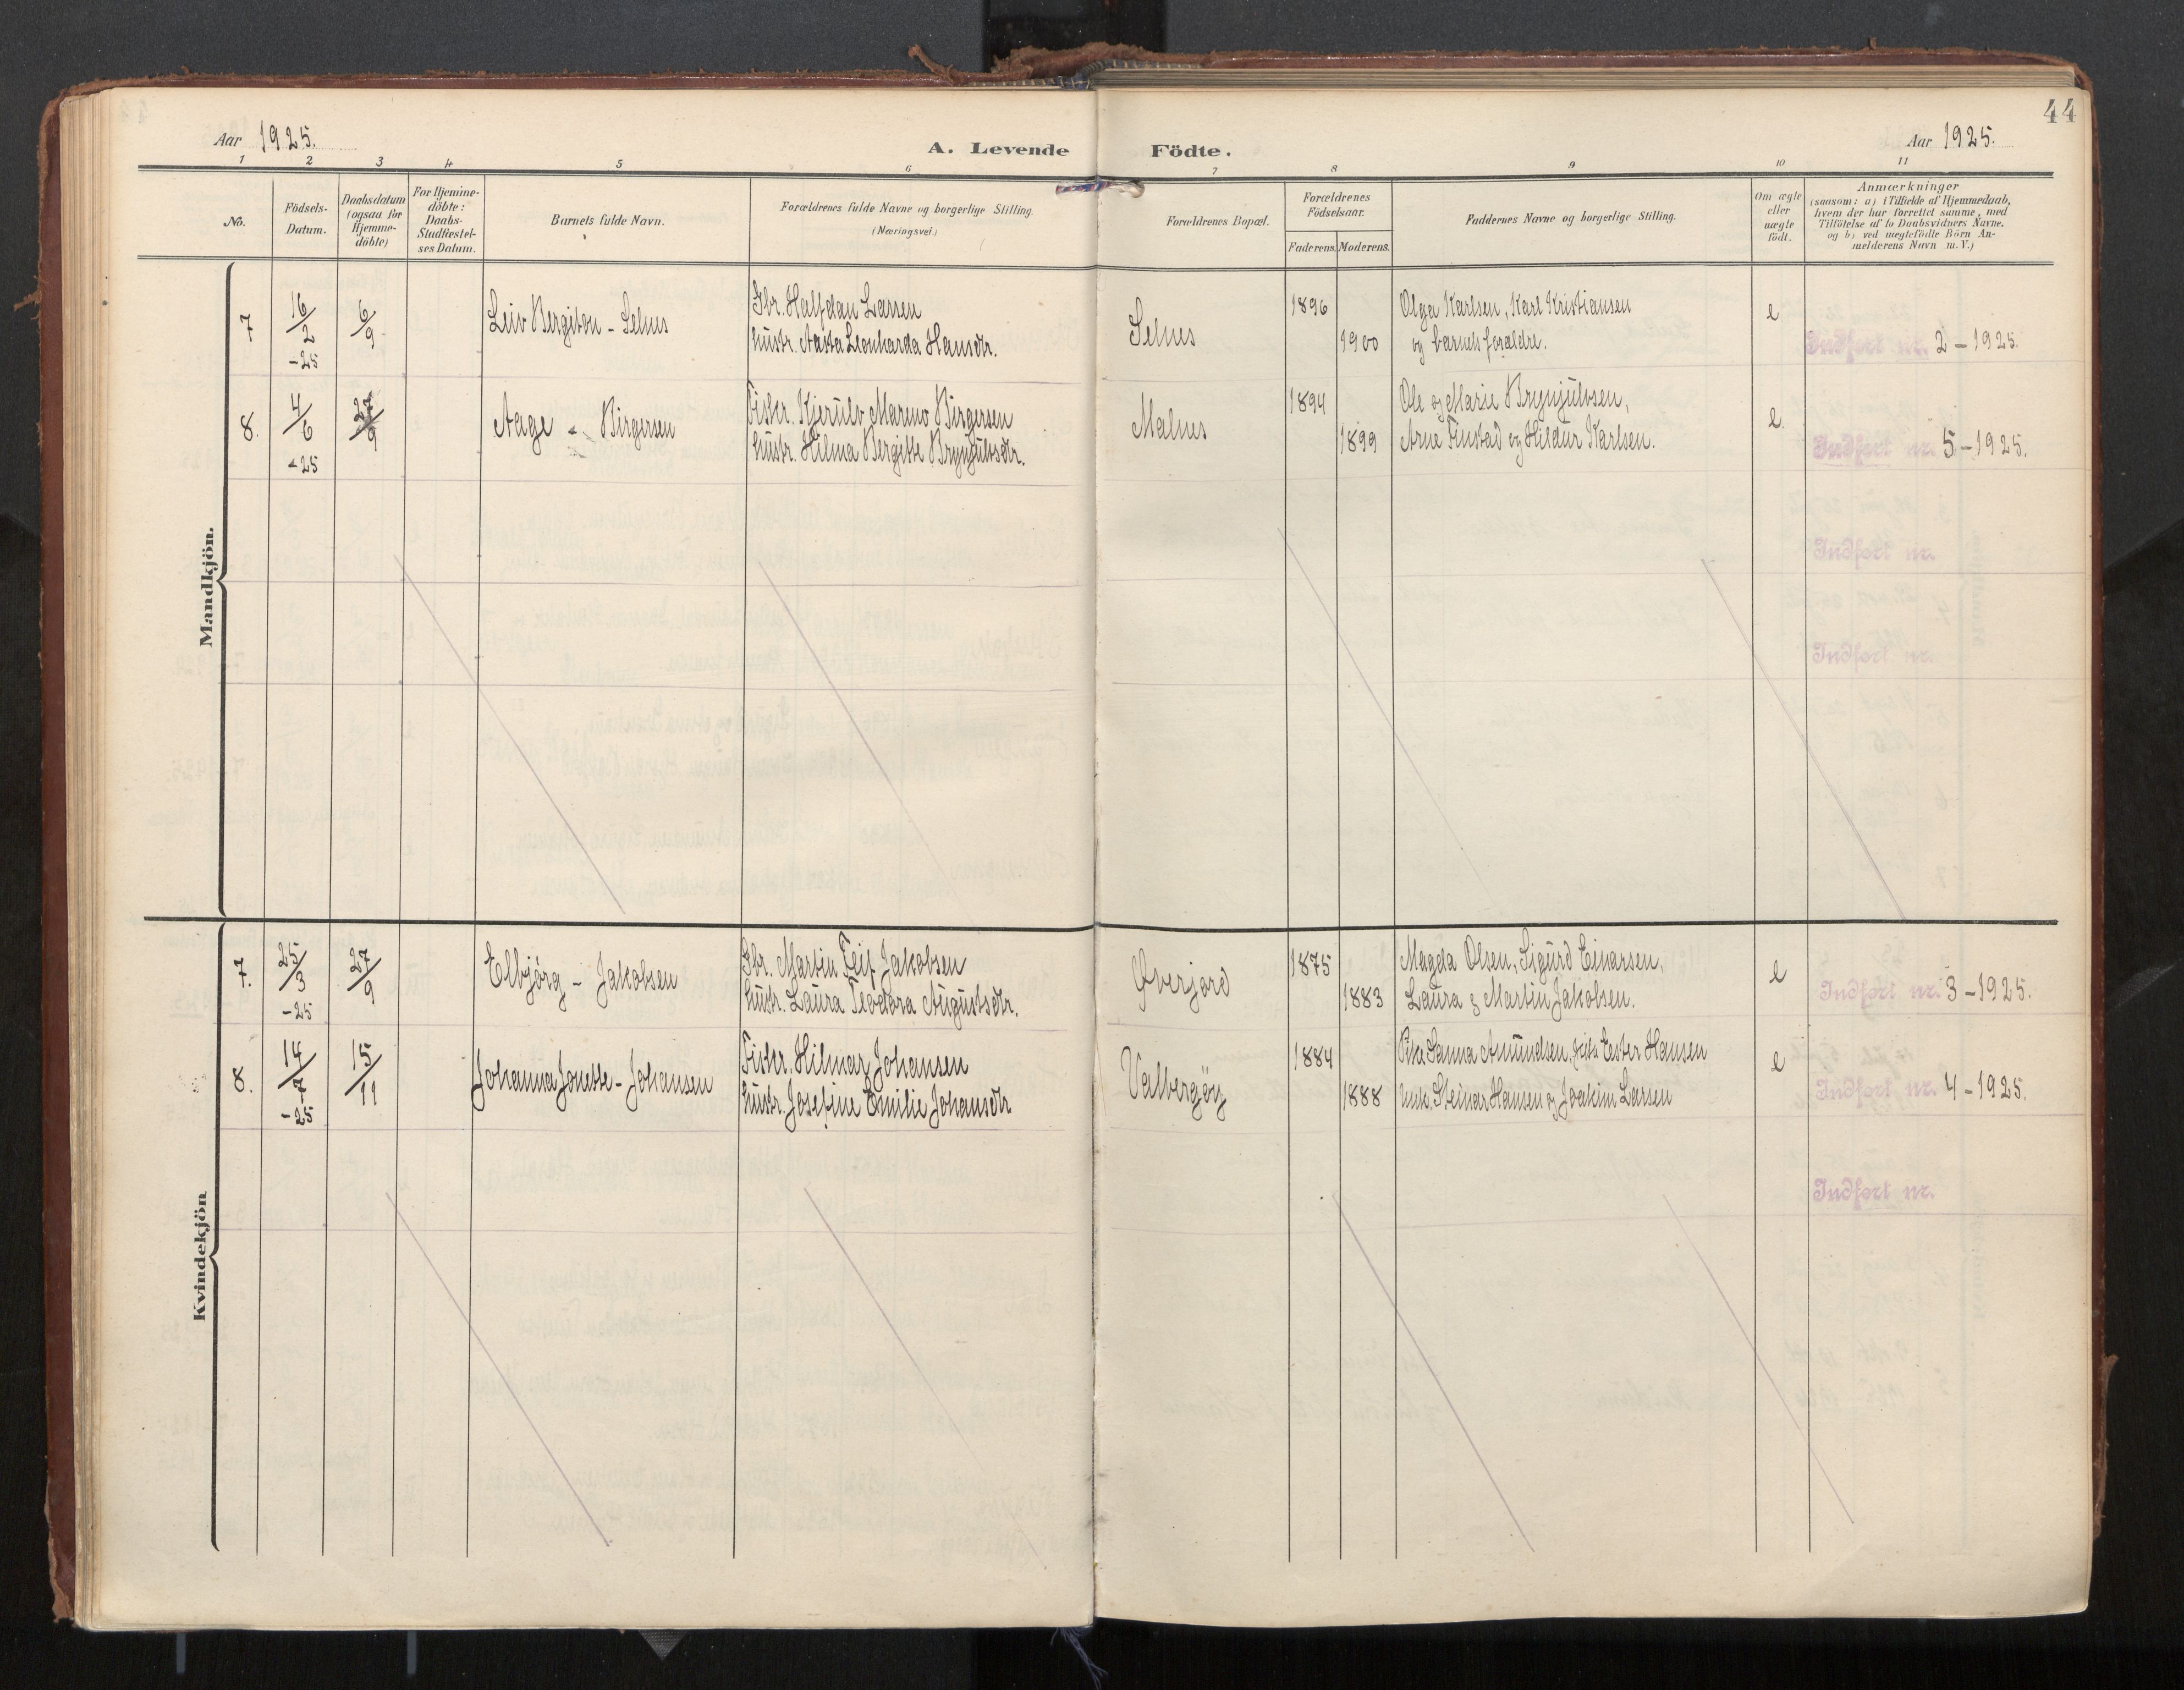 44
Aar 1925.
A. Levende Födte.
Aar 1925.
1 2 3 4 5 6 7 8 9 10 11
No.
Födsels-
Datum.
Daabsdatum
(ogsaa for
Hjemme-
döbte)
For Hjemme-
döbte:
Daabs-
Stadfæstel-
ses Datum.
Barnets fulde Navn.
Forældrenes fulde Navne og borgerlige Stilling.
(Næringsvei.)
Forældrenes Bopæl.
Forældrenes
Födselsaar.
Faderens. Moderens.
Faddernes Navne og borgerlige Stilling.
Om ægte
eller
uægte
födt.
Anmærkninger
(saasom: a) i Tilfælde af Hjemmedaab,
hvem der har forrettet samme, med
Tilföielse af to Daabsvidners Navne,
og b) ved uægtefödte Börn An-
melderens Navn m. V.)
Mandkjön.
7 16/2 -25 6/9 Leiv Bergiton - Selnes
Gbr. Halfdan Larsen
hustr. Aasta Leonharda Hansdtr.
Selnes 1896 1900
Olga Karlsen, Karl Kristiansen
og barnets forældre.
e
Indført nr. 2 - 1925.
8. 4/6 -25 27/9 Aage - Birgersen
Fisker. Kjerulv Mareno Birgersen
hustr. Hilma Bergitte Brynjulvsdtr.
Malnes 1894 1899
Ole og Marie Brynjulvsen,
Arne Finstad og Hildur Karlsen.
e.
Indført nr. 5 - 1925.
Indført nr.
Indført nr.
Kvindekjön
7. 25/3 -25 27/9 Elbjörg - Jakobsen
Gbr. Martin Feif Jakobsen
hustr. Laura Teodora Augustsdtr.
Øverjord 1875 1883
Magda Olsen, Sigurd Einarsen,
Laura & Martin Jakobsen.
e
Indført nr. 3 - 1925.
8. 14/7 -25 15/11 Johanna Jonette - Johansen
Fisker. Hilmar Johansen
hustr. Josefine Emilie Johansdtr
Valbergöy 1884 1888
Pike Sanna Amundsen, Ester Hansen
Steinar Hansen og Joakim Larsen
e
Indført nr. 4 - 1925.
Indført nr.